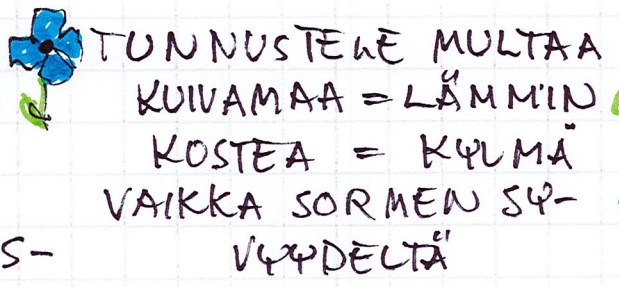 TUNNUSTELE MULTAA
KUIVAMAA = LÄMMIN
KOSTEA = KYLMÄ
VAIKKA SORMEN SY-
S- VYYDELTÄ